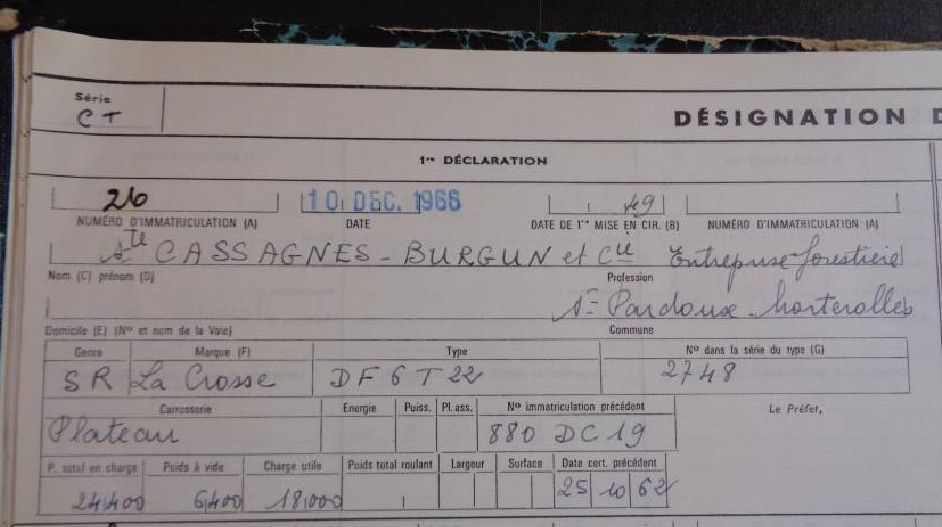 Série
CT
DÉSIGNATION D
1re DÉCLARATION
26 10 DEC. 1966 49
NUMÉRO D'IMMATRICULATION (A) DATE DATE DE 1re MISE EN CIR. (B) NUMÉRO D'IMMATRICULATION (A)
Sté CASSAGNES - BURGUN et Cie Entreprise forestière
Nom (C) prénom (D) Profession
St Pardoux Morterolles
Domicile (E) (No et nom de la Voie) Commune
Genre Marque (F) Type No dans la série du type (G)
SR La Crosse DF 6 T 22 2748
Carrosserie Energie Puiss. Pl. ass. No immatriculation précédent Le Préfet,
Plateau 880 DC 19
P. total en charge Poids à vide Charge utile Poids total roulant Largeur Surface Date cert. précédent
24400 6400 18000 25 10 62